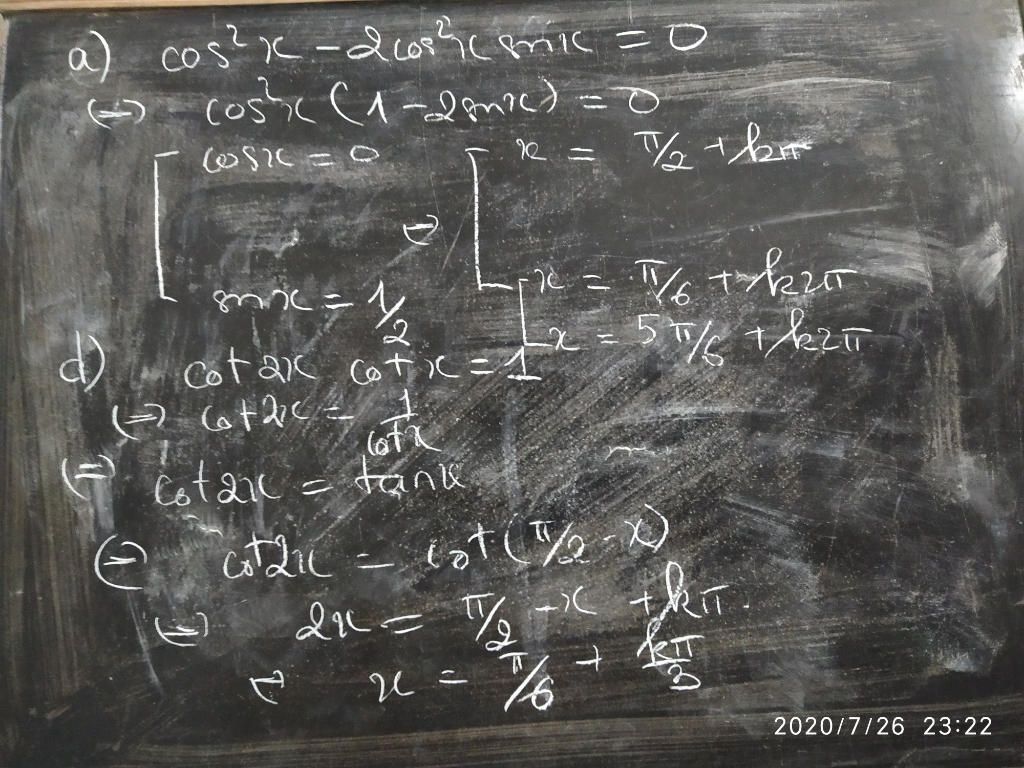 a) cos²x - 2cos²x sinx = 0
⇔ cos²x (1 - 2sinx) = 0
[ cosx = 0 ⇔ [ x = π/2 + kπ
sinx = 1/2 [ x = π/6 + k2π
x = 5π/6 + k2π
d) cot2x cotx = 1
⇔ cot2x = 1/cotx
⇔ cot2x = tanx
⇔ cot2x = cot(π/2 - x)
⇔ 2x = π/2 - x + kπ
⇔ x = π/6 + kπ/3
2020/7/26 23:22